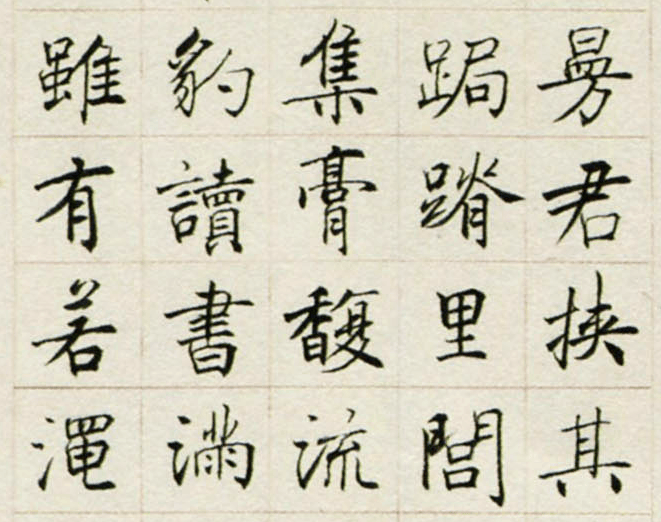 君挾其
跼蹐里閭
集膏馥流
豹讀書滿
雖有若澠